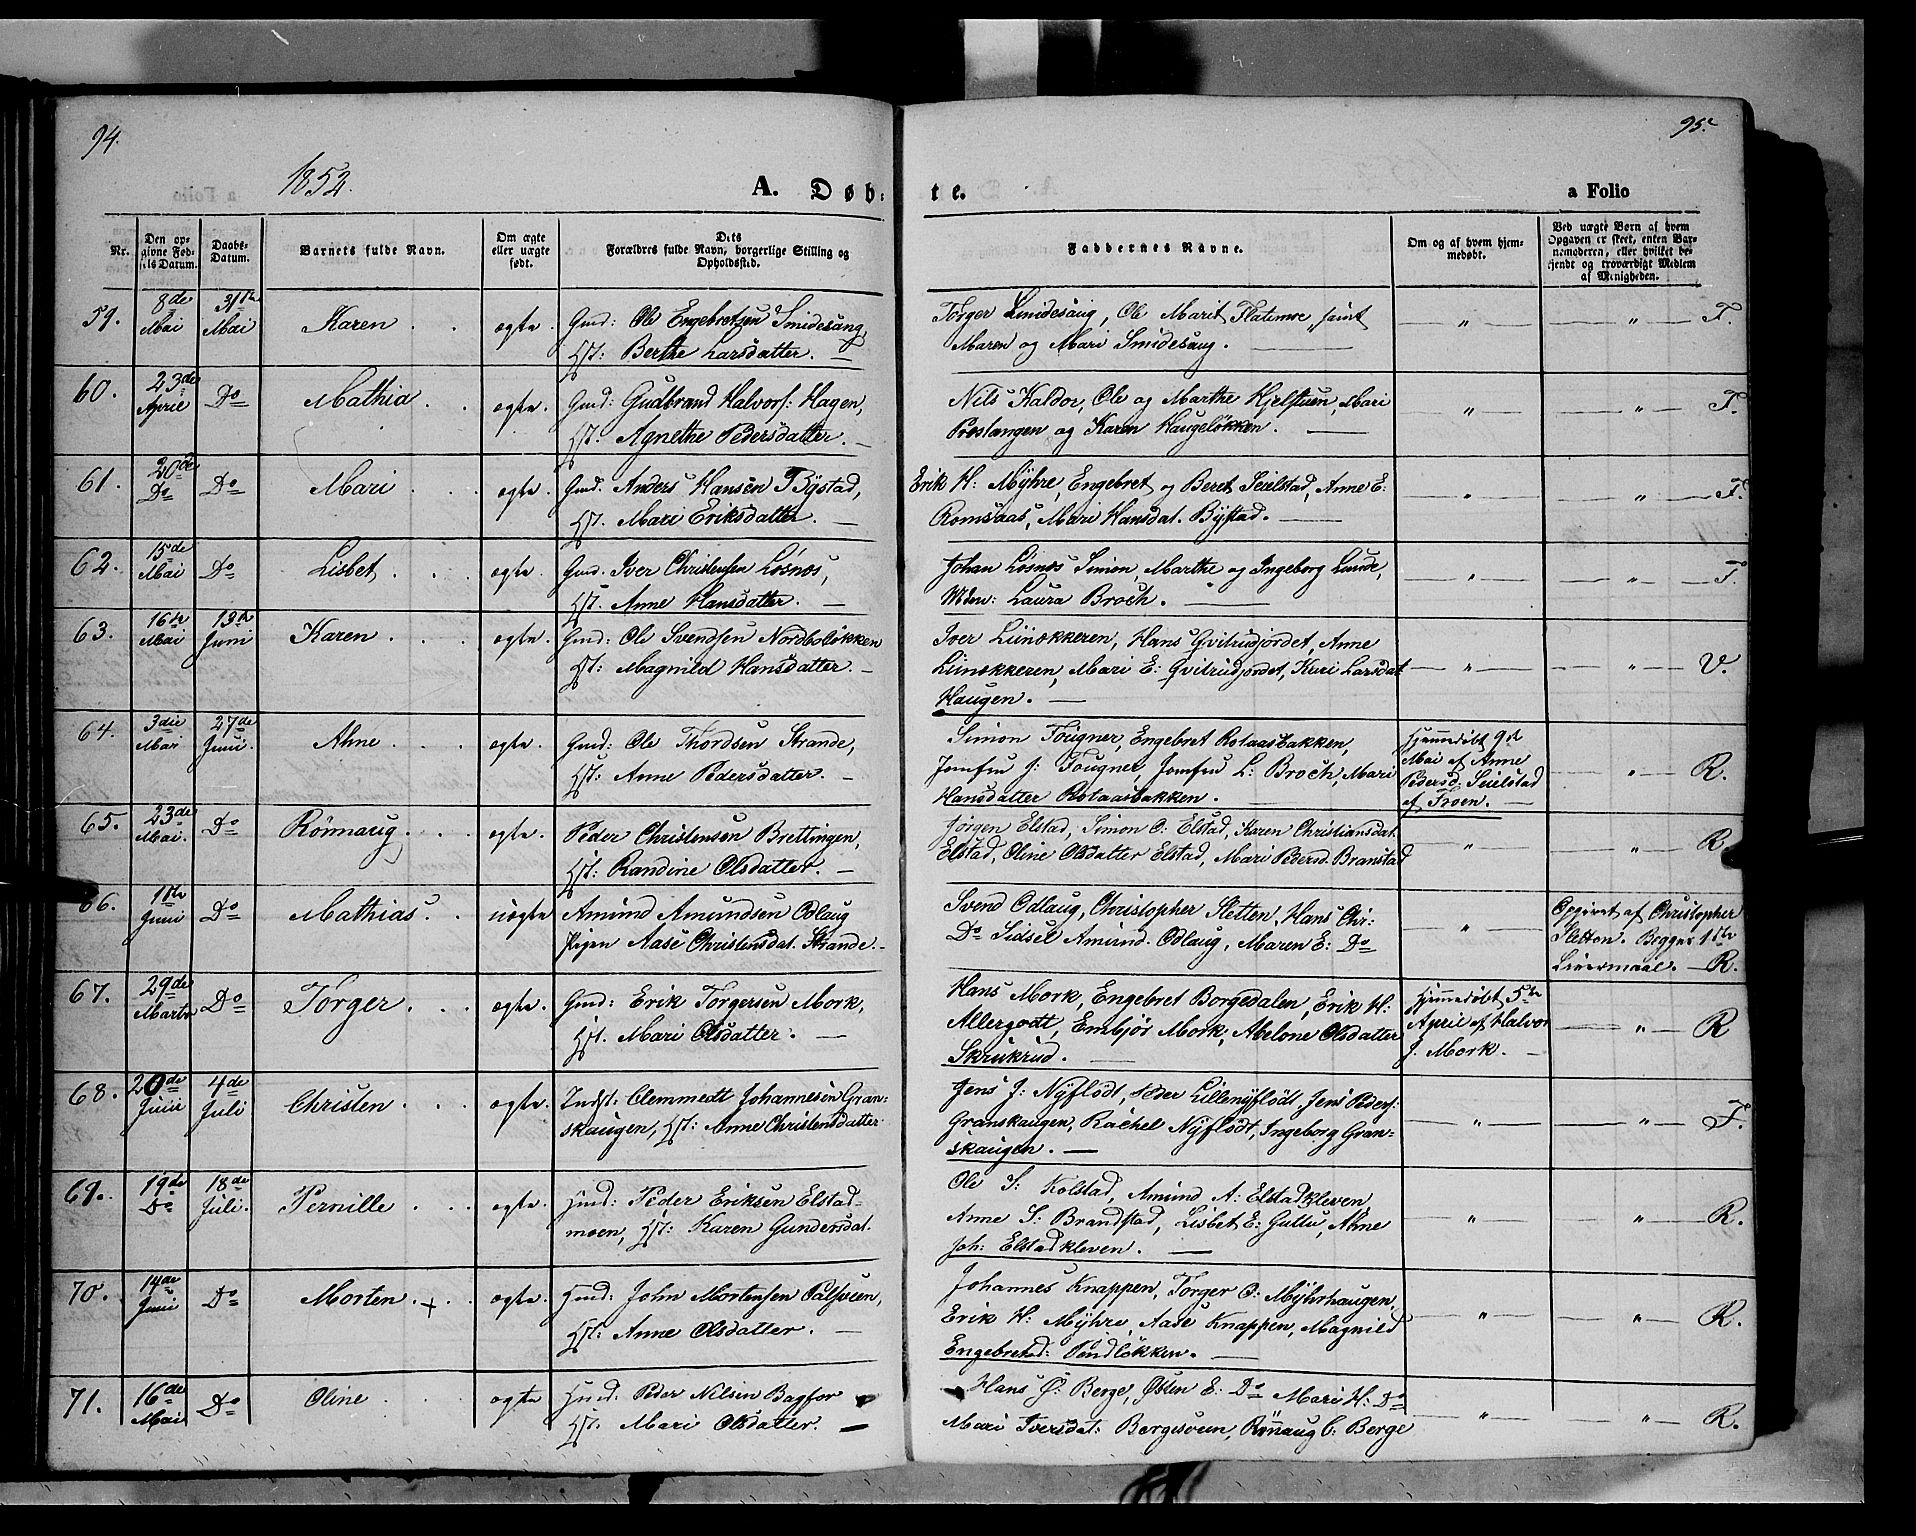 94.
95.
1852.
A. Døb:
te.
a Folio
Nr.
Den op-
givne Fød-
sels Datum.
Daabs-
Datum.
Barnets fulde Navn.
Om ægte
eller uægte
født.
Dets
Forældres fulde Navn, borgerlige Stilling og
Opholdssted.
Faddernes Navne.
Om og af hvem hjem-
medøbt.
Ved uægte Børn af hvem
Opgaven er skeet, enten Bar-
nemoderen, eller hvilket be-
kjendt og troværdigt Medlem
af Menigheden.
59. 8de Mai 31te Mai Karen ægte. Gmd: Ole Engebretsen Smidesang,
Hst: Berthe Larsdatter.
Torger Smidesaug, Ole Marit Flatmoe, samt
Maren og Mari Smidesaug. " " F.
60. 23de April Do Mathia ægte. Gmd: Gudbrand Halvors: Hagen,
Hst: Agnethe Pedersdatter.
Nils Kaldor, Ole og Marthe Hjelstuen, Mari
Prestangen og Karen Haugeløkken. " " F.
61. 20de Do Do Mari ægte. Gmd. Anders Hansen Bystad,
Hst. Mari Eriksdatter.
Erik H: Myhre, Engebret og Beret Seielstad, Anne E:
Romsaas, Mari Hansdat. Bystad. " " F.
62. 15de Mai Do Lisbet ægte. Gmd. Iver Christensen Løsnes,
Hst. Anne Hansdatter.
Johan Løsnes Simen, Marthe og Ingeborg Lunde,
Mdm: Laura Broch. " " F
63. 16te Mai 13te Juni Karen ægte. Gmd: Ole Svendsen Nordboløkken
Hst: Magnild Hansdatter.
Iver Liinokkeren, Hans Qvitrudjordet, Anne
Liinokkeren, Mari E: Qvitrudjordet, Kari Larsdat
Haugen. " " V.
64. 3die Mai 27de Juni. Ahne ægte. Gmd: Ole Thordsen Strande,
Hst: Anne Pedersdatter.
Simon Fougner, Engebret Rolaasbakken,
Jomfru J: Fougner, Jomfru L: Broch, Mari
Hansdatter Rolaasbakken.
Hjemmedøbt 9de
Mai af Anne
Pedersd. Seielstad
af Troen. " R.
65. 23de Mai. Do Rønnaug ægte. Peder Christensen Brettingen,
Hst: Randine Olsdatter.
Jørgen Elstad, Simon O: Elstad, Karen Christiansdat.
Elstad, Oline Olsdatter Elstad, Mari Pedersd. Branstad " " R
66. 1ste Juni Do Mathias. uægte Amund Amundsen Odlaug
Pigen Aase Christensdat. Strande.
Svend Odlaug, Christopher Sletten, Hans Chr:
Do Sidsel Amund. Odlaug, Maren E: Do "
Opgivet af Christopher
Sletten. Begges 1ste
Leiermaal. R.
67. 29de Marts Do Torger ægte. Gmd: Erik Torgersen Mork,
Hst. Mari Olsdatter.
Hans Mork, Engebret Borgedalen, Erik H:
Allergodt, Embjør Mork, Abelone Olsdatter
Skrukrud.
Hjemmedøbt 5te
April af Halvor
J. Mork. " R
68. 20de Juni 4de Juli Christen ægte. Indst: Clemmedt Johannesen Gran-
skaugen, Hst: Anne Christensdatter.
Jens J: Nyflødt, Peder Lillenyflødt Jens Peders:
Granskaugen, Rachel Nyflødt, Ingeborg Gran-
skaugen. " " F.
69. 19de Do 18de Juli. Pernille ægte. Gmd: Peder Eriksen Elstad-
moen, Hst: Karen Gundersdat.
Ole S: Kolstad, Amund A: Elstadkleven
Anne S: Brandstad, Lisbet E: Gullu, Ahne
Joh: Elstadkleven. " " R.
70. 14de Juni Do Morten + ægte. Gmd: John Mortensen Palsveen,
Hst: Anne Olsdatter.
Johannes Knappen, Torger O: Myhrhaugen,
Erik H: Myhre, Aase Knappen, Magnild
Engebretsd: Rindløkken. " " R.
71. 16de Mai Do Oline ægte Gmd: Peder Nilsen Bagfor
Hst. Mari Olsdatter.
Hans Ø: Berge, Østen E: Do Mari H: Do
Mari Iversdat: Bergesveen, Rønnaug C: Berge " " R.